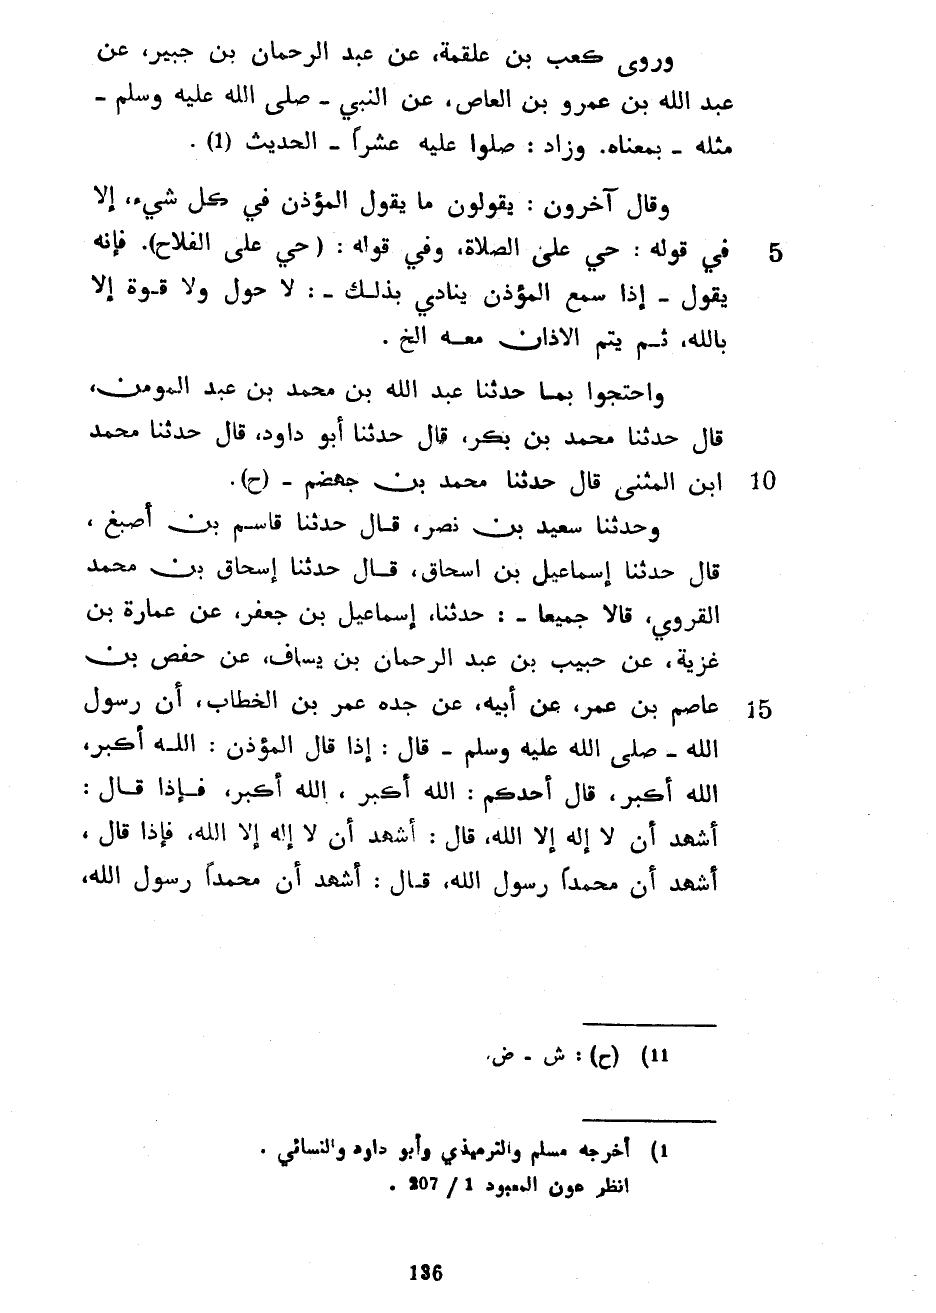 وروى كعب بن علقمة، عن عبد الرحمان بن جبير، عن
عبد الله بن عمرو بن العاص، عن النبي - صلى الله عليه وسلم -
مثله - بمعناه. وزاد : صلوا عليه عشراً - الحديث (1) .
وقال آخرون : يقولون ما يقول المؤذن في كل شيء، إلا
5 في قوله : حي على الصلاة، وفي قوله : (حي على الفلاح). فإنه
يقول - إذا سمع المؤذن ينادي بذلك - : لا حول ولا قوة إلا
بالله، ثم يتم الاذان معه الخ .
واحتجوا بما حدثنا عبد الله بن محمد بن عبد المومن،
قال حدثنا محمد بن بكر، قال حدثنا أبو داود، قال حدثنا محمد
10 ابن المثنى قال حدثنا محمد بن جهضم - (ح).
وحدثنا سعيد بن نصر، قال حدثنا قاسم بن أصبغ ،
قال حدثنا إسماعيل بن اسحاق، قال حدثنا إسحاق بن محمد
القروي، قالا جميعا - : حدثنا، إسماعيل بن جعفر، عن عمارة بن
غزية، عن حبيب بن عبد الرحمان بن يساف، عن حفص بن
15 عاصم بن عمر، عن أبيه، عن جده عمر بن الخطاب، أن رسول
الله - صلى الله عليه وسلم - قال : إذا قال المؤذن : الله أكبر،
الله أكبر، قال أحدكم : الله أكبر ، الله أكبر، فإذا قال :
أشهد أن لا إله إلا الله، قال : أشهد أن لا إله إلا الله، فإذا قال ،
أشهد أن محمداً رسول الله، قال : أشهد أن محمداً رسول الله،
11) (ح) : ش - ض.
1) أخرجه مسلم والترميذي وأبو داود والنسائي .
انظر عون المعبود 1 / 207 .
136